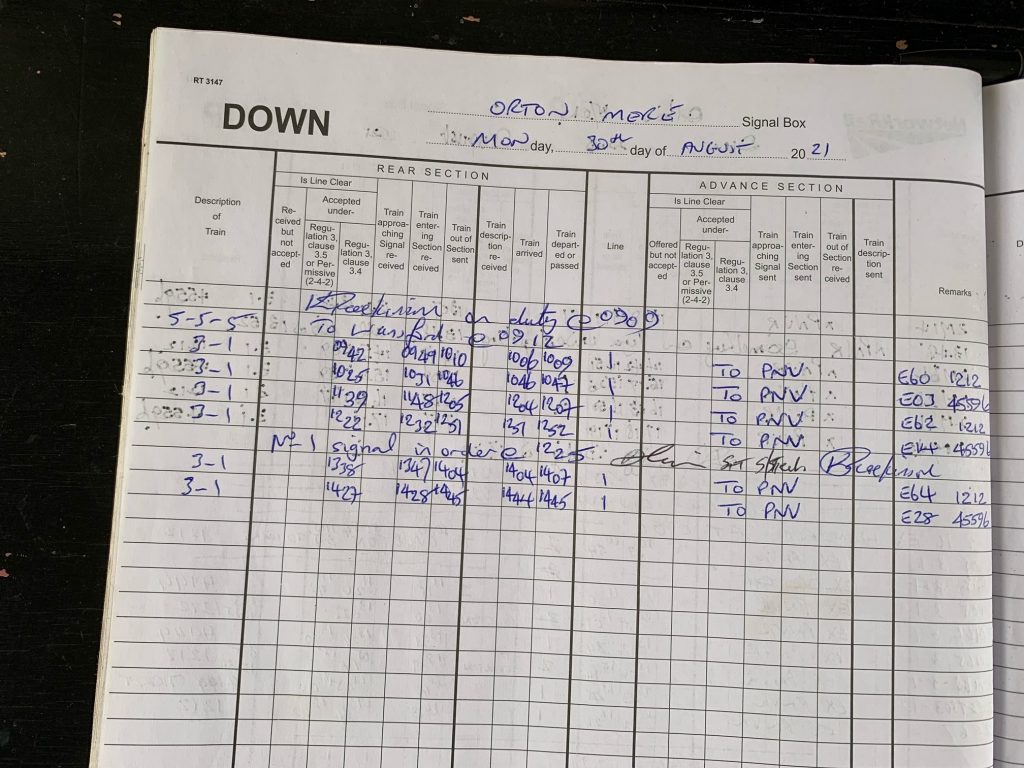 RT 3147
DOWN
ORTON MERE Signal Box
MON day, 30th day of AUGUST 20 21
REAR SECTION
ADVANCE SECTION
Description of Train
Is Line Clear
Re-ceived but not accept-ed
Accepted under-
Regu-lation 3, clause 3.5 or Per-missive (2-4-2)
Regu-lation 3, clause 3.4
Train approa-ching Signal re-ceived
Train enter-ing Section re-ceived
Train out of Section sent
Train descrip-tion re-ceived
Train arrived
Train depart-ed or passed
Line
Is Line Clear
Offered but not accept-ed
Accepted under-
Regu-lation 3, clause 3.5 or Per-missive (2-4-2)
Regu-lation 3, clause 3.4
Train approa-ching Signal sent
Train enter-ing Section sent
Train out of Section re-ceived
Train descrip-tion sent
Remarks
on duty @ 0909
5-5-5 To Wansford @ 09.12
3-1 0942 0949 1010 1006 1009 1 TO PNV E60 1212
3-1 1025 1031 1046 1046 1047 1 TO PNV E03 45596
3-1 1139 1148 1205 1204 1207 1 TO PNV E62 1212
3-1 1222 1232 1251 1251 1252 1 TO PNV E14 45596
Nº 1 signal in order @ 1225
3-1 1338 1347 1404 1404 1407 1 TO PNV E64 1212
3-1 1427 1428 1445 1444 1445 1 TO PNV E28 45596